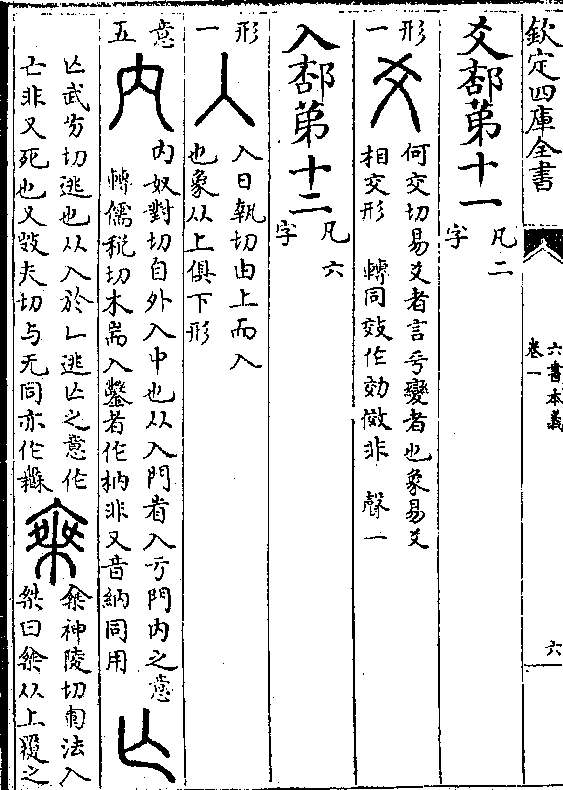 欽定四庫全書
六書本義
卷一
六
爻部第十一
凡二
字
形
一
爻
何交切易爻者言乎變者也象易爻
相交形 轉同效作効傚非 聲一
入部第十二
凡六
字
形
一
入
入日執切由上而入
也象从上俱下形
意
五
內
內奴對切自外入中也从入門省入亏門內之意
轉儒稅切木耑入鑿者作枘非又音納同用
亾
亾武方切逃也从入於乚逃亾之意作
亡非又死也又毀夫切与无同亦作
椉
椉神陵切軍法入
桀曰椉从上覆之